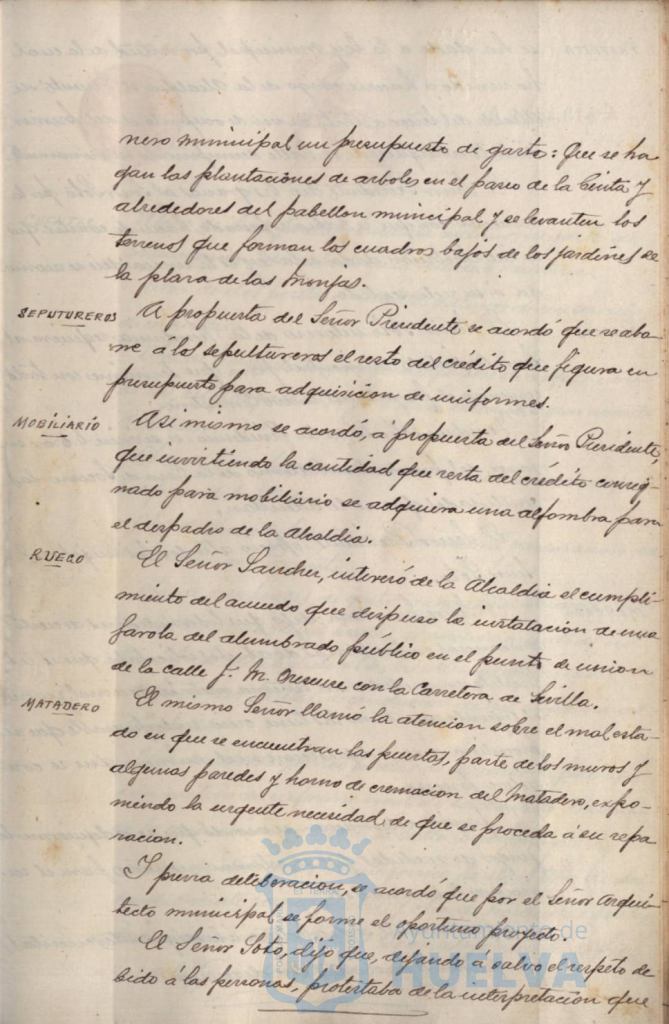 nero municipal un presupuesto de gasto: Que se ha
gan las plantaciones de arboles en el paseo de la Cinta y
alrededores del pabellon municipal y se levanten los
terrenos que forman los cuadros bajos de los jardines de
la plaza de las Monjas.
SEPUTUREROS
A propuesta del Señor Presidente se acordó que se abo-
ne á los sepultureros el resto del crédito que figura en
presupuesto para adquisicion de uniformes.
MOBILIARIO
Asi mismo se acordó, á propuesta del Señor Presidente,
que invirtiendo la cantidad que resta del crédito consig-
nado para mobiliario se adquiera una alfombra para
el despacho de la Alcaldia.
RUEGO
El Señor Sanchez, interesó de la Alcaldia el cumpli-
miento del acuerdo que dispuso la instalacion de una
farola del alumbrado público en el punto de union
de la calle J. M. con la Carretera de Sevilla.
MATADERO
El mismo Señor llamó la atencion sobre el mal esta-
do en que se encuentran las puertas, parte de los muros y
algunas paredes y horno de cremacion del Matadero, expo-
niendo la urgente necesidad de que se proceda á su repa
racion.
Y previa deliberacion, se acordó que por el Señor Arqui-
tecto municipal se forme el oportuno proyecto.
El Señor Soto, dijo que, dejando á salvo el respeto de
bido á las personas, protestaba de la interpretacion que
Ayuntamiento de
HUELVA